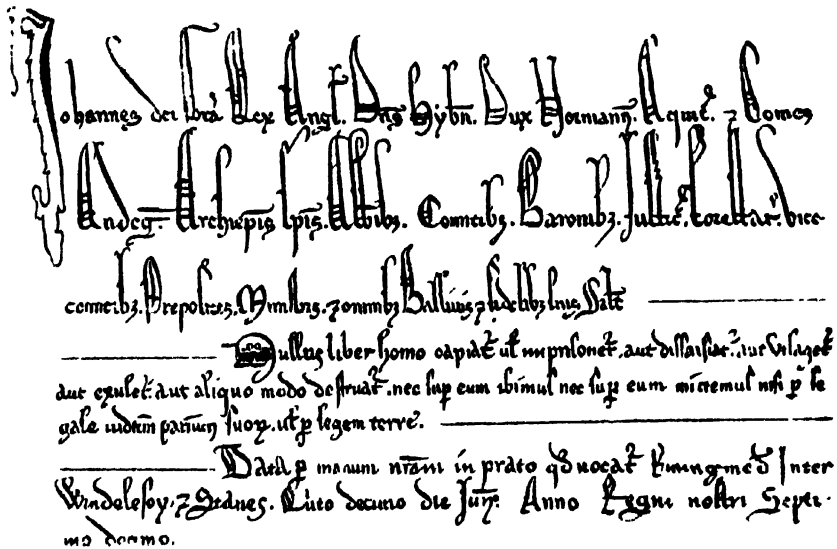 Johannes dei Gra Rex Angl. Dns Hybn. Dux Normann. Aquit. ⁊ Comes
Andeg. Archiepis. Epis. Abbibz. Comitibz. Baronibz. Justic. Forestar. vice
comitibz. Prepositis. Ministris. ⁊ omnibz Ballivis ⁊ fidelibz suis Salt
Nullus liber homo capiat. ul imprisonet. aut dissaisiat. aut utlaget.
aut exulet. aut aliquo modo destruat. nec sup eum ibimus nec sup eum mittemus nisi p le
gale iudicium parium suoꝝ. ul p legem terre.
Data p manum nram in prato qd vocat Runingmed Inter
Windelesor. ⁊ Stanes. Quinto decimo die Jun. Anno Regni nostri Septi-
mo decimo.